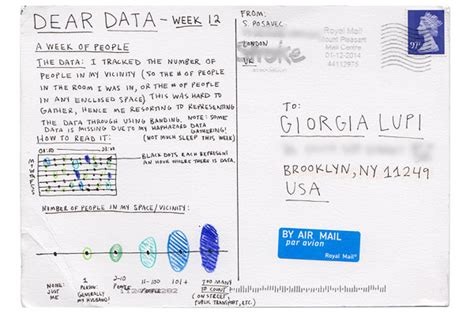 DEAR DATA - WEEK 12
A WEEK OF PEOPLE
THE DATA: I TRACKED THE NUMBER
OF PEOPLE IN MY VICINITY (SO THE # OF PEOPLE
IN THE ROOM I WAS IN, OR THE # OF PEOPLE
IN ANY ENCLOSED SPACE) THIS WAS HARD TO
GATHER, HENCE ME RESORTING TO REPRESENTING
THE DATA THROUGH USING BANDING. NOTE: SOME
DATA IS MISSING DUE TO MY HAPHAZARD DATA
GATHERING!
HOW TO READ IT: (NOT MUCH SLEEP THIS WEEK)
BLACK DOTS EACH REPRESENT
AN HOUR WHERE THERE IS DATA.
NUMBER OF PEOPLE IN MY SPACE/VICINITY:
NONE:
JUST
ME
1
PERSON:
GENERALLY
MY HUSBAND!
2-10
PEOPLE
11-100
101+
TOO MANY
TO COUNT
(ON STREET,
PUBLIC TRANSPORT, ETC.)
FROM:
S. POSAVEC
LONDON
UK
Royal Mail
Mount Pleasant
Mail Centre
05-12-2014
44112975
TO:
GIORGIA LUPI
BROOKLYN, NY 11249
USA
BY AIR MAIL
par avion
Royal Mail